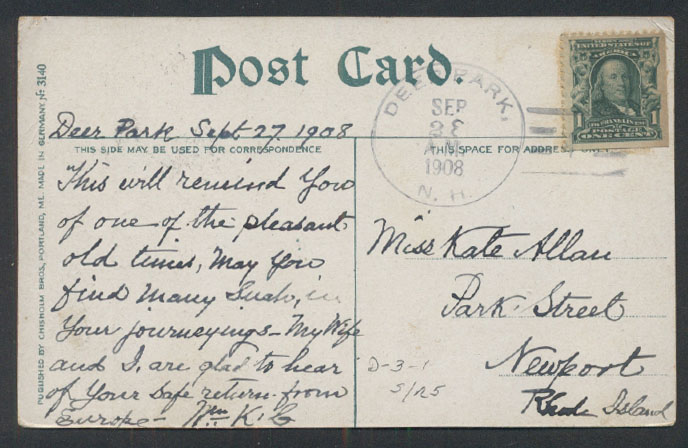 Post Card.
UNITED STATES OF
AMERICA
1 1
FRANKLIN
POSTAGE
ONE CENT
DEER PARK,
SEP
28
AM
1908
N. H.
Deer Park Sept. 27, 1908
THIS SIDE MAY BE USED FOR CORRESPONDENCE
THIS SPACE FOR ADDRESS ONLY
This will remind You
of one of the pleasant
old times, May You
find Many Such, in
Your journeyings - My Wife
and I, are glad to hear
of Your safe return from
Europe - Wm K. G
Miss Kate Allan
Park Street
Newport
Rhode Island
D-3-1
5/125
PUBLISHED BY CHISHOLM BROS, PORTLAND, ME. MADE IN GERMANY. № 3140